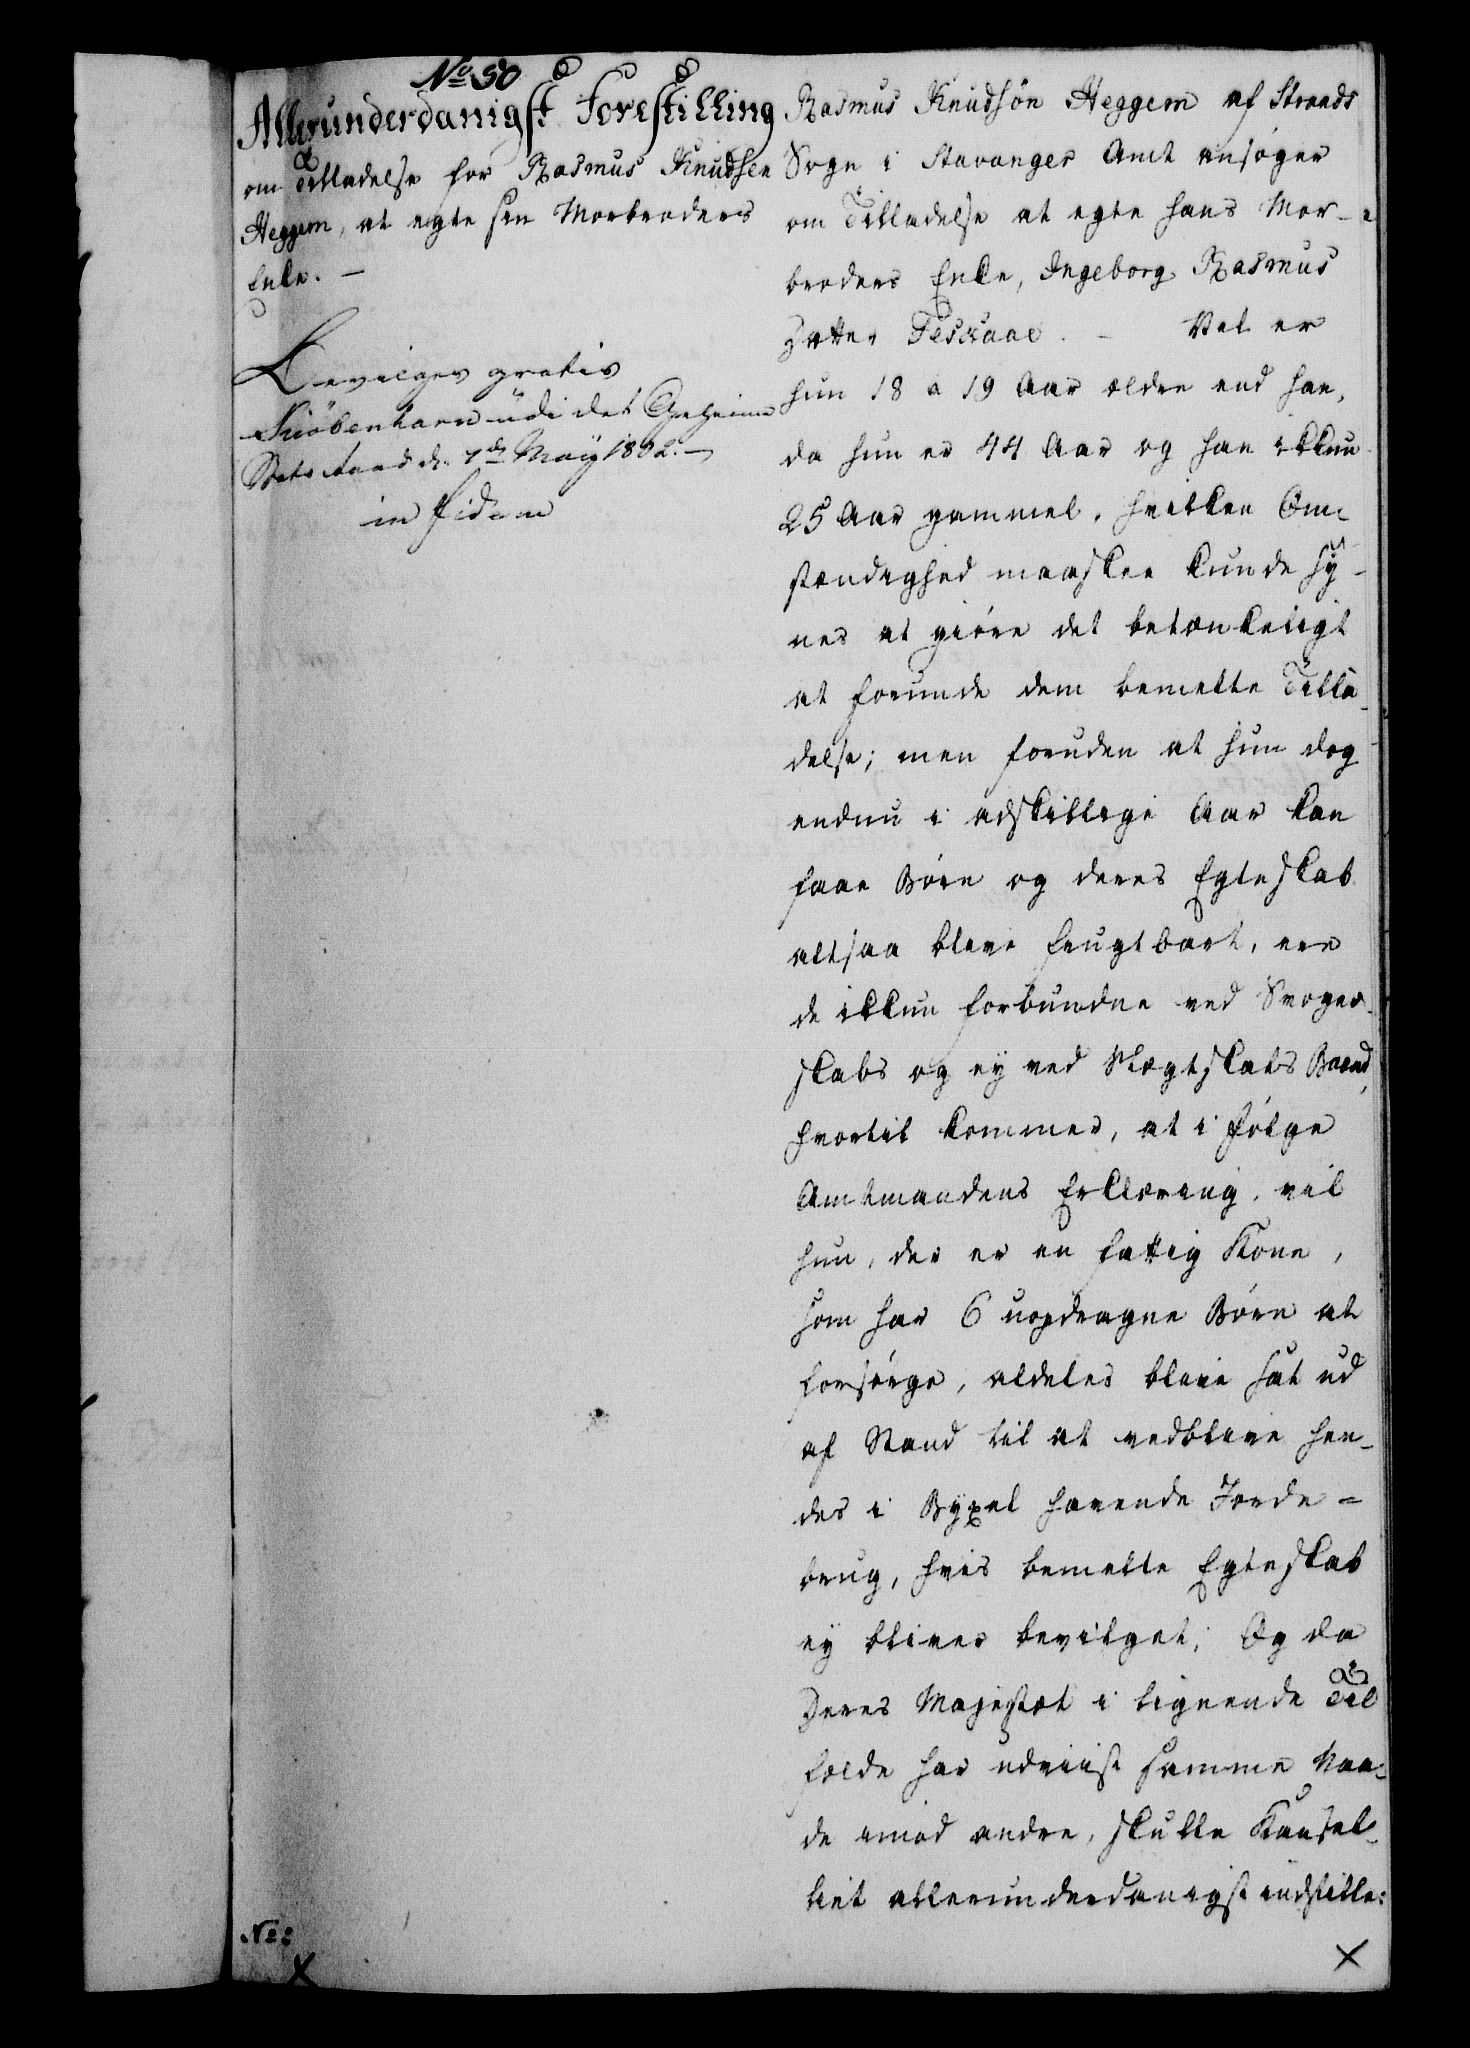 No 50
Allerunderdanigst Forestilling
om Tilladelse for Rasmus Knudsen
Heggem, at egte sin Morbroders
Enke. —
Bevilges gratis
Kiøbenhavn udi det Geheime
Stats Raad d. 7de Maÿ 1802. —
in fidem
Rasmus Knudsøn Heggem af Strands
Sogn i Stavanger Amt ansøger
om Tilladelse at egte hans Mor-
broders Enke, Ingeborg Rasmus
Datter . – Vel er
hun 18 a 19 Aar ældre end han,
da hun er 44 Aar og han ikkun
25 Aar gammel, hvilken Om-
stændighed maaskee kunde sÿ-
nes at giøre det betænkeligt
at forunde dem bemelte Tilla-
delse; men foruden at hun dog
endnu i adskillige Aar kan
faae Børn og deres Egteskab
altsaa blive frugtbart, ere
de ikkun forbundne ved Svoger-
skabs og eÿ ved Slægtskabs Baand,
hvortil kommer, at i følge
Amtmandens Erklæring, vil
hun, der er en fattig Kone,
som har 6 uopdragne Børn at
forsørge, aldeles blive sat ud
af Stand til at vedblive hen-
des i Bÿxel havende Jorde=
brug, hvis bemelte Egteskab
eÿ bliver bevilget; Og da
Deres Majestæt i lignende Til
fælde har udviist samme Naa-
de imod andre, skulle Kansel-
liet allerunderdanigst indstille:
No: